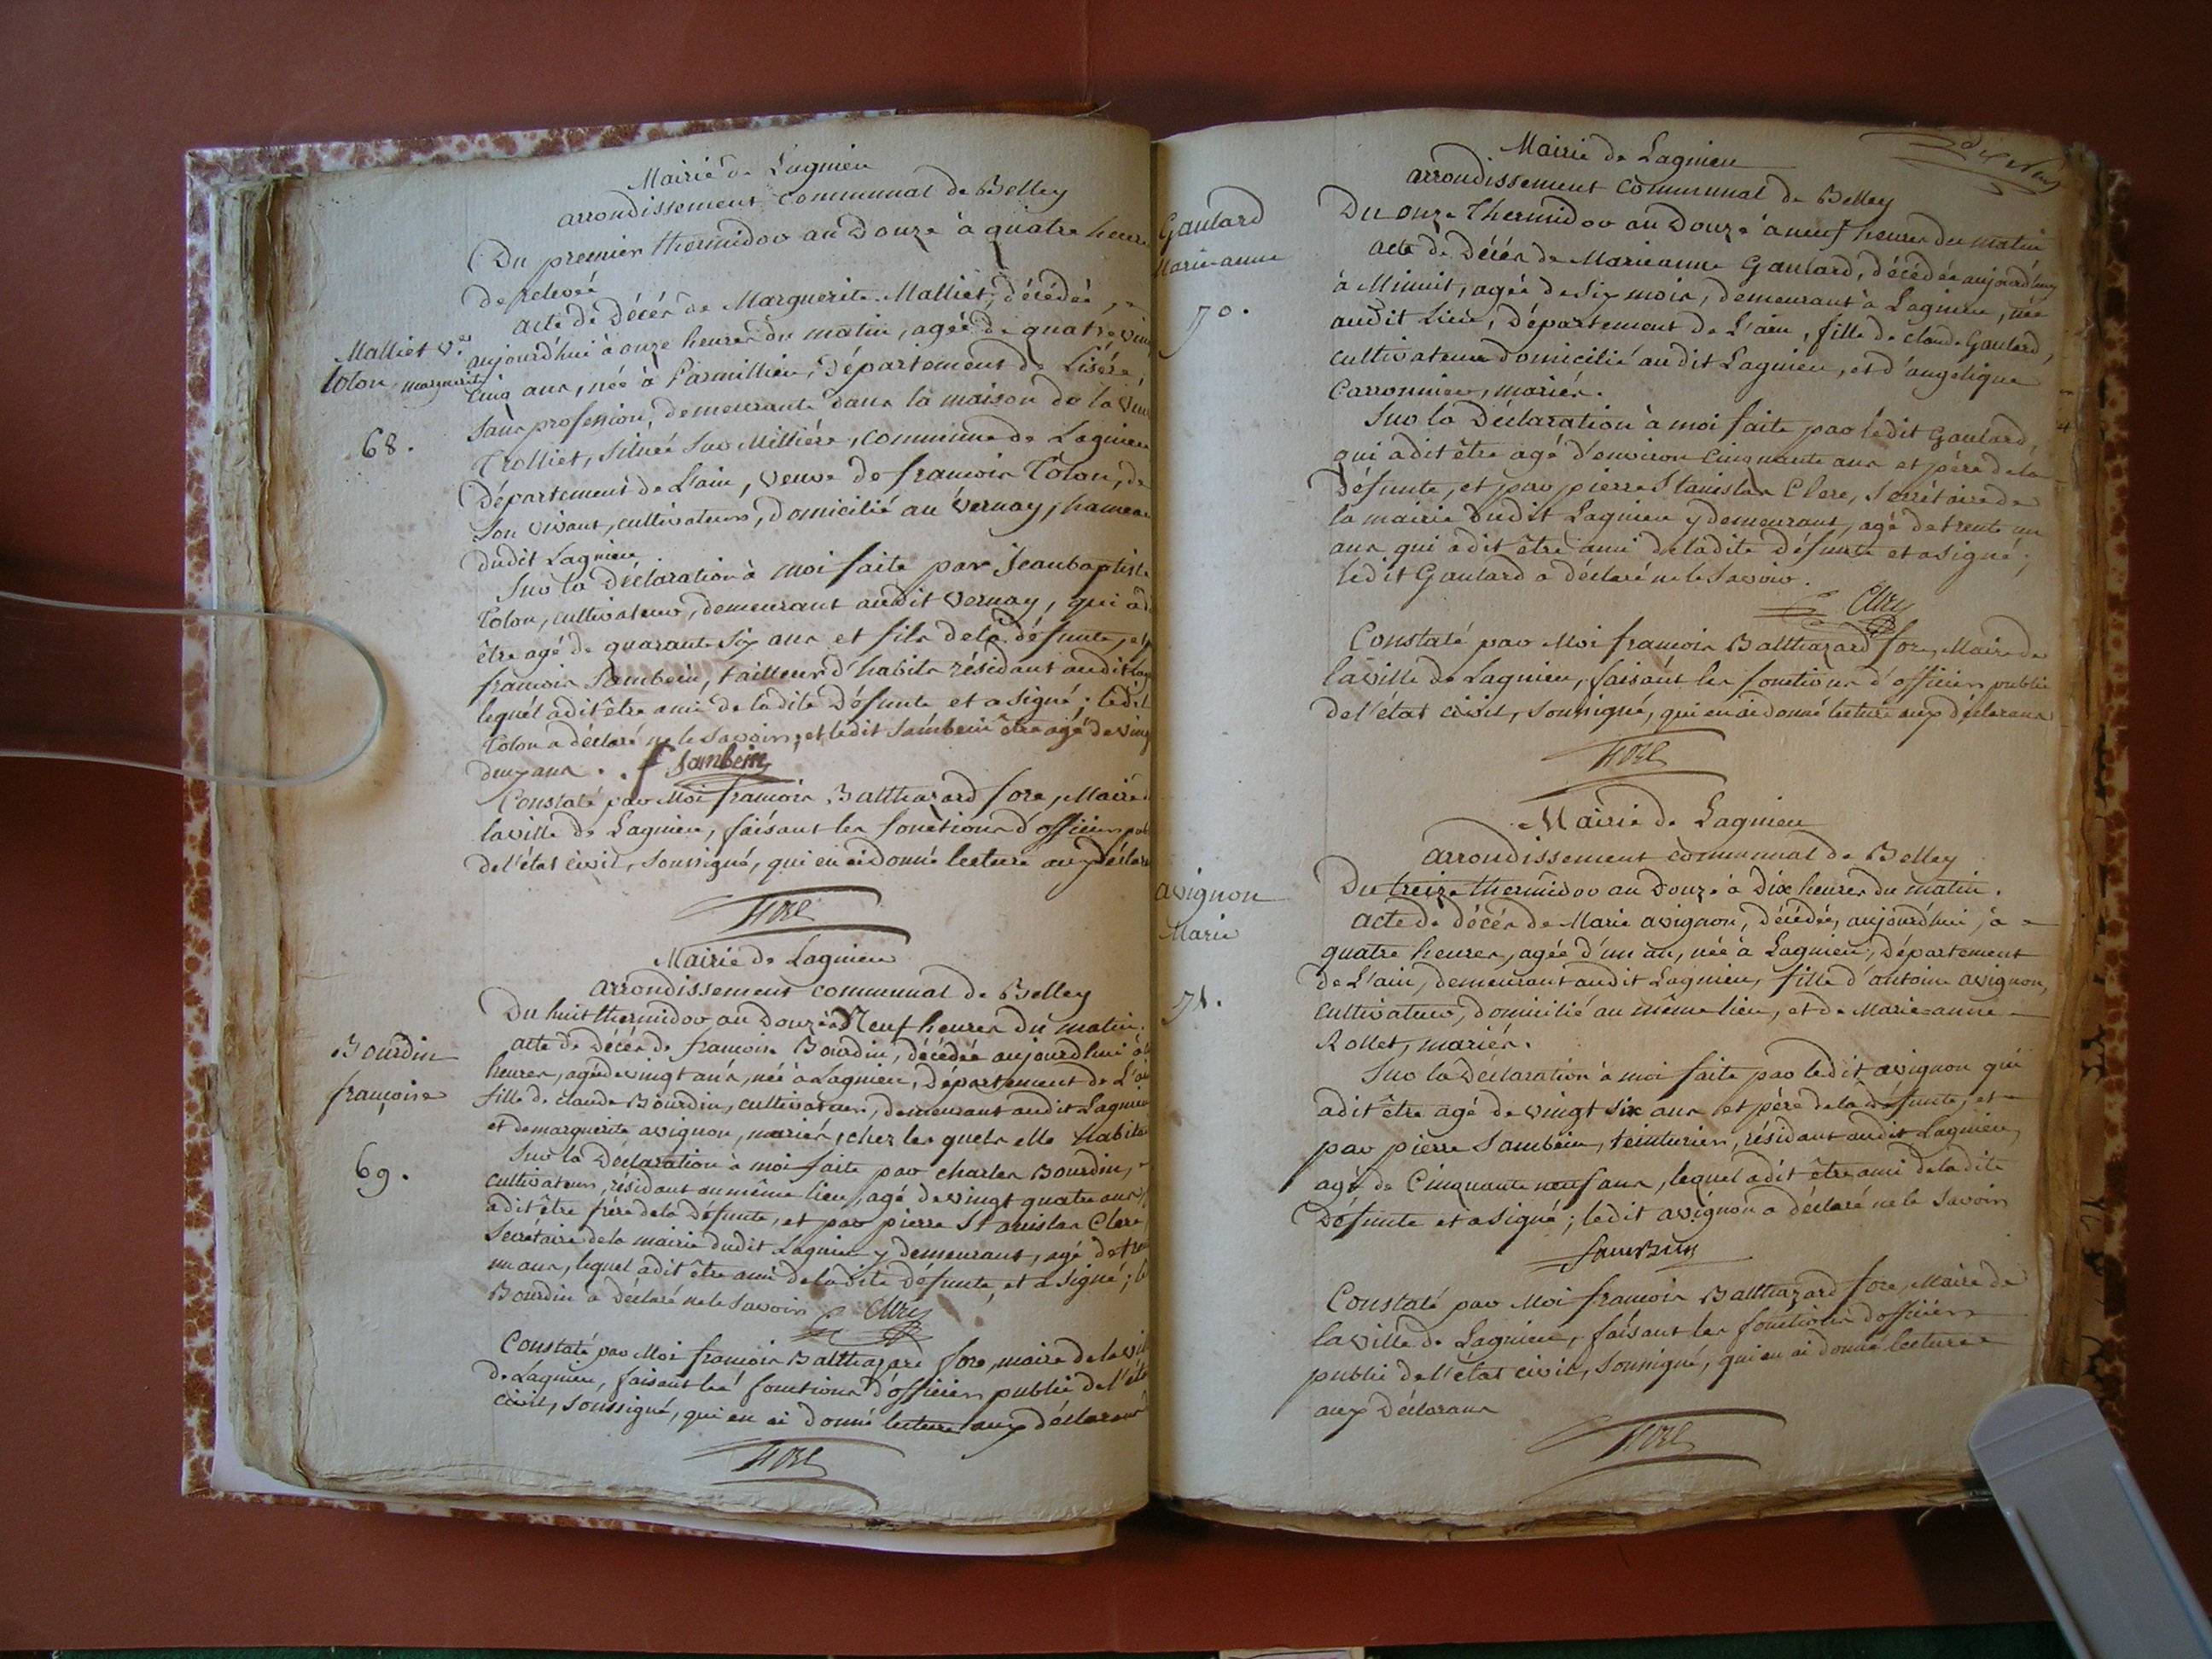 Mairie de Lagnieu
arrondissement communal de Belley
Du premier thermidor an Douze à quatre heures
de relevée
acte de Décès de Marguerite Malliet, décédée
Malliet Ve
Colon, marguerite
68.
aujourd'hui à onze heures du matin, agée de quatre vingt
cinq ans, née à Parmillieu, Département de Lisére,
sans profession, demeurante dans la maison de la
Trolliet, située sur Millière, commune de Lagnieu
Département de L'ain, veuve de françois Colon, de
son vivant, cultivateur, domicilié au Vernay, hameau
dudit Lagnieu
Sur la Déclaration à moi faite par Jeanbaptiste
Colon, cultivateur, demeurant audit Vernay, qui a
être agé de quarante six ans et fils de la défunte, et
françois Sambein, tailleur d'habits résidant audit
lequel a dit être ami de ladite Défunte et a signé ; ledit
Colon a déclaré ne le savoir, et ledit Sambein être agé de vingt
deux ans. f Sambein
Constaté par Moi françois Balthazard fore, Maire
la ville de Lagnieu, faisant les fonctions d'officier
de l'état civil, soussigné, qui en ai donné lecture aux
fore
Mairie de Lagnieu
arrondissement communal de Belley
Du huit thermidor an Douze à Neuf heures du matin.
Bourdin
françoise
69.
acte de Décès de françoise Bourdin, décédée aujourd'hui à
heures, agée de vingt ans, née à Lagnieu, Département de L'ain
fille de claude Bourdin, cultivateur, demeurant audit Lagnieu
et de marguerite avignon, mariés, chez les quels elle habite
Sur la Déclaration à moi faite par charles Bourdin,
cultivateur, résidant au même lieu, agé de vingt quatre ans
a dit être frère de la Défunte, et par pierre Stanislas Clere,
Secrétaire de la mairie dudit Lagnieu y demeurant, agé de
un ans, lequel a dit être ami de ladite Défunte, et a signé ;
Bourdin a Déclaré ne le savoir
Constaté par Moi françois Balthazard fore, maire de la
de Lagnieu, faisant les fonctions d'officier public de l'
civil, soussigné, qui en ai donné lecture aux déclarans
fore
Mairie de Lagnieu
arrondissement communal de Belley
Gaulard
Marie-anne
70.
Du onze Thermidor an Douze à neuf heures du matin
acte de Décès de Marieanne Gaulard, décédée aujourd'huy
à Minuit, agée de six mois, demeurant à Lagnieu, née
audit Lieu, Département de L'ain, fille de claude Gaulard,
cultivateur domicilié audit Lagnieu, et d'angelique
Carronnier, mariés.
Sur la Déclaration à moi faite par ledit Gaulard,
qui a dit être agé d'environ cinquante ans et père de la
Défunte, et par pierre Stanislas Clere, Secrétaire de
la mairie dudit Lagnieu y demeurant, agé de trente un
ans qui a dit être ami de ladite Défunte et a signé ;
ledit Gaulard a déclaré ne le savoir.
Constaté par Moi françois Balthazard fore, Maire de
la ville de Lagnieu, faisant les fonctions d'officier public
de l'état civil, soussigné, qui en ai donné lecture aux déclarans
fore
Mairie de Lagnieu
arrondissement communal de Belley
avignon
Marie
71.
Du treize thermidor an Douze à Dix heures du matin.
acte de décès de Marie avignon, décédée, aujourd'hui, à
quatre heures, agée d'un an, née à Lagnieu, Département
de L'ain, demeurant audit Lagnieu, fille d'antoine avignon,
cultivateur, domicilié au même lieu, et de Marie-anne
Rollet, mariés.
Sur la Déclaration à moi faite par ledit avignon qui
a dit être agé de vingt six ans et père de la défunte, et
par pierre Sambein, teinturier, résidant audit Lagnieu,
agé de Cinquante neuf ans, lequel a dit être ami de ladite
Défunte et a signé ; ledit avignon a déclaré ne le savoir
Sambein
Constaté par Moi françois Balthazard fore, Maire de
la ville de Lagnieu, faisant les fonctions d'officier
public de l'état civil, soussigné, qui en ai donné lecture
aux Déclarans
fore